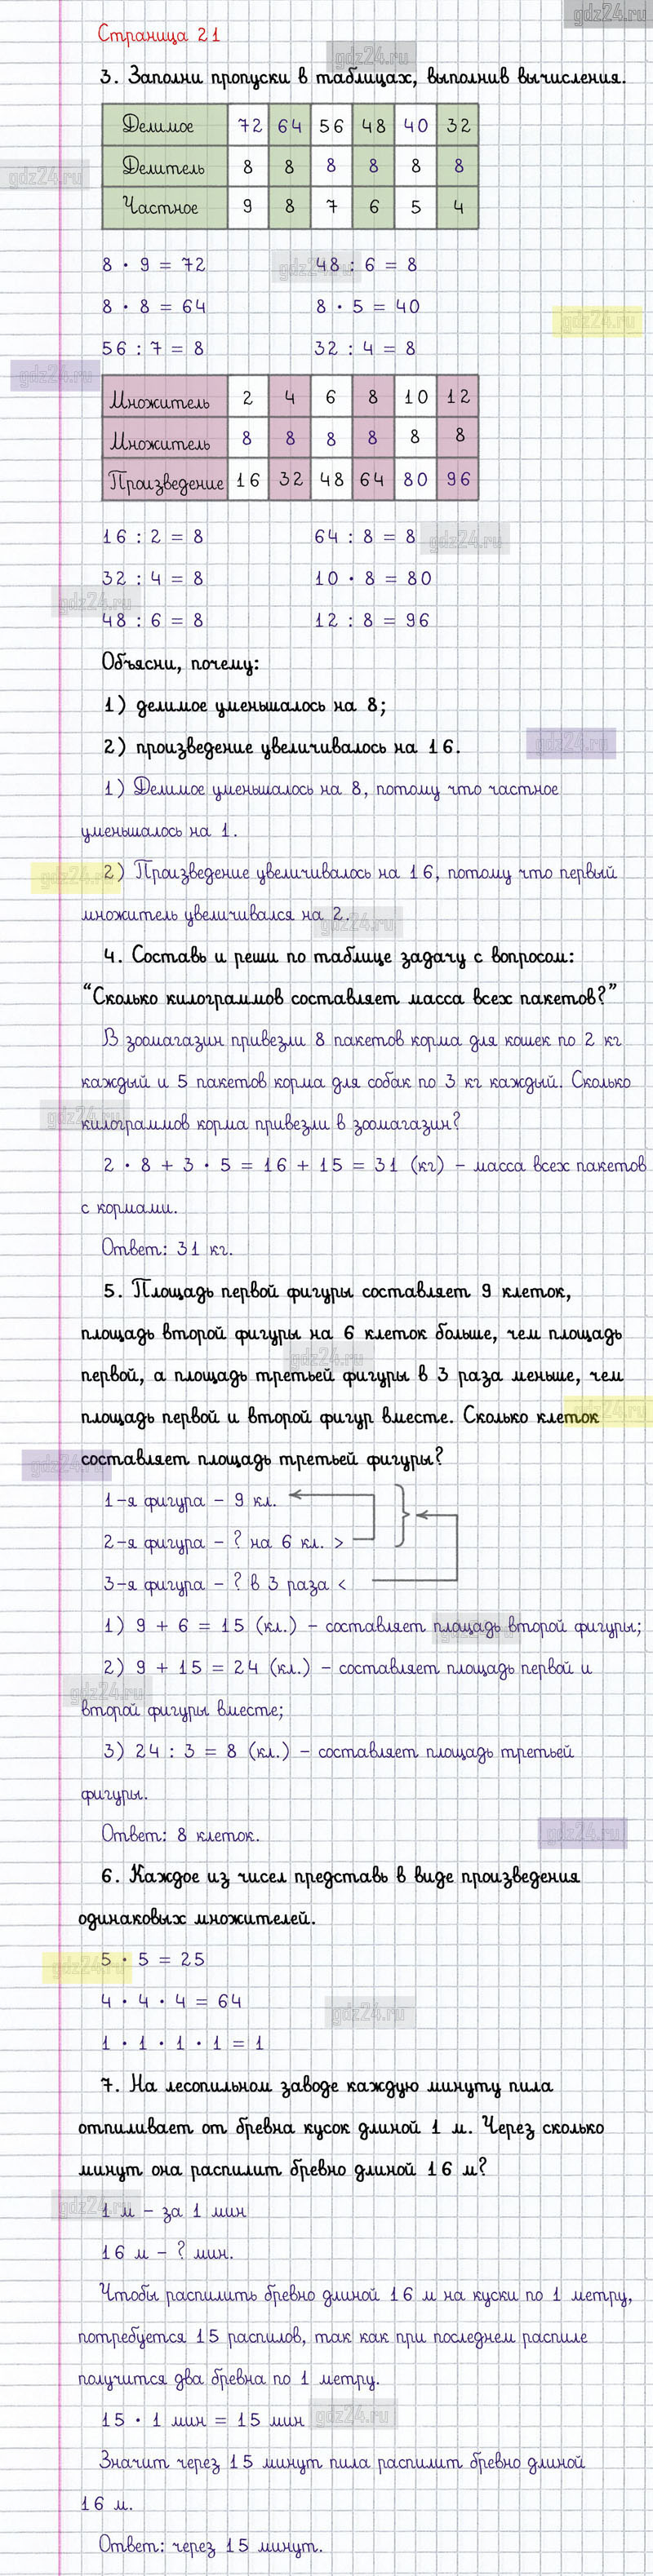 gdz24.ru
Страница 21
gdz24.ru
3. Заполни пропуски в таблицах, выполнив вычисления.
Делимое 72 64 56 48 40 32
Делитель 8 8 8 8 8 8
gdz24.ru
Частное 9 8 7 6 5 4
8 · 9 = 72 48 : 6 = 8
gdz24.ru
8 · 8 = 64 8 · 5 = 40
gdz24.ru
56 : 7 = 8 32 : 4 = 8
gdz24.ru
Множитель 2 4 6 8 10 12
Множитель 8 8 8 8 8 8
Произведение 16 32 48 64 80 96
16 : 2 = 8 64 : 8 = 8
gdz24.ru
32 : 4 = 8 10 · 8 = 80
gdz24.ru
48 : 6 = 8 12 : 8 = 96
Объясни, почему:
1) делимое уменьшалось на 8;
2) произведение увеличивалось на 16.
gdz24.ru
1) Делимое уменьшалось на 8, потому что частное
уменьшалось на 1.
gdz24.ru
2) Произведение увеличивалось на 16, потому что первый
множитель увеличивался на 2.
gdz24.ru
4. Составь и реши по таблице задачу с вопросом:
“Сколько килограммов составляет масса всех пакетов?”
В зоомагазин привезли 8 пакетов корма для кошек по 2 кг
каждый и 5 пакетов корма для собак по 3 кг каждый. Сколько
gdz24.ru
килограммов корма привезли в зоомагазин?
2 · 8 + 3 · 5 = 16 + 15 = 31 (кг) – масса всех пакетов
с кормами.
Ответ: 31 кг.
5. Площадь первой фигуры составляет 9 клеток,
площадь второй фигуры на 6 клеток больше, чем площадь
gdz24.ru
первой, а площадь третьей фигуры в 3 раза меньше, чем
площадь первой и второй фигур вместе. Сколько клеток
gdz24.ru
составляет площадь третьей фигуры?
gdz24.ru
1-я фигура – 9 кл.
2-я фигура – ? на 6 кл. >
3-я фигура – ? в 3 раза <
1) 9 + 6 = 15 (кл.) – составляет площадь второй фигуры;
gdz24.ru
2) 9 + 15 = 24 (кл.) – составляет площадь первой и
gdz24.ru
второй фигуры вместе;
3) 24 : 3 = 8 (кл.) – составляет площадь третьей
фигуры.
Ответ: 8 клеток.
gdz24.ru
6. Каждое из чисел представь в виде произведения
одинаковых множителей.
5 · 5 = 25
gdz24.ru
4 · 4 · 4 = 64
gdz24.ru
1 · 1 · 1 · 1 = 1
7. На лесопильном заводе каждую минуту пила
отпиливает от бревна кусок длиной 1 м. Через сколько
минут она распилит бревно длиной 16 м?
gdz24.ru
1 м – за 1 мин
16 м – ? мин.
Чтобы распилить бревно длиной 16 м на куски по 1 метру,
потребуется 15 распилов, так как при последнем распиле
получится два бревна по 1 метру.
15 · 1 мин = 15 мин
gdz24.ru
Значит через 15 минут пила распилит бревно длиной
16 м.
Ответ: через 15 минут.